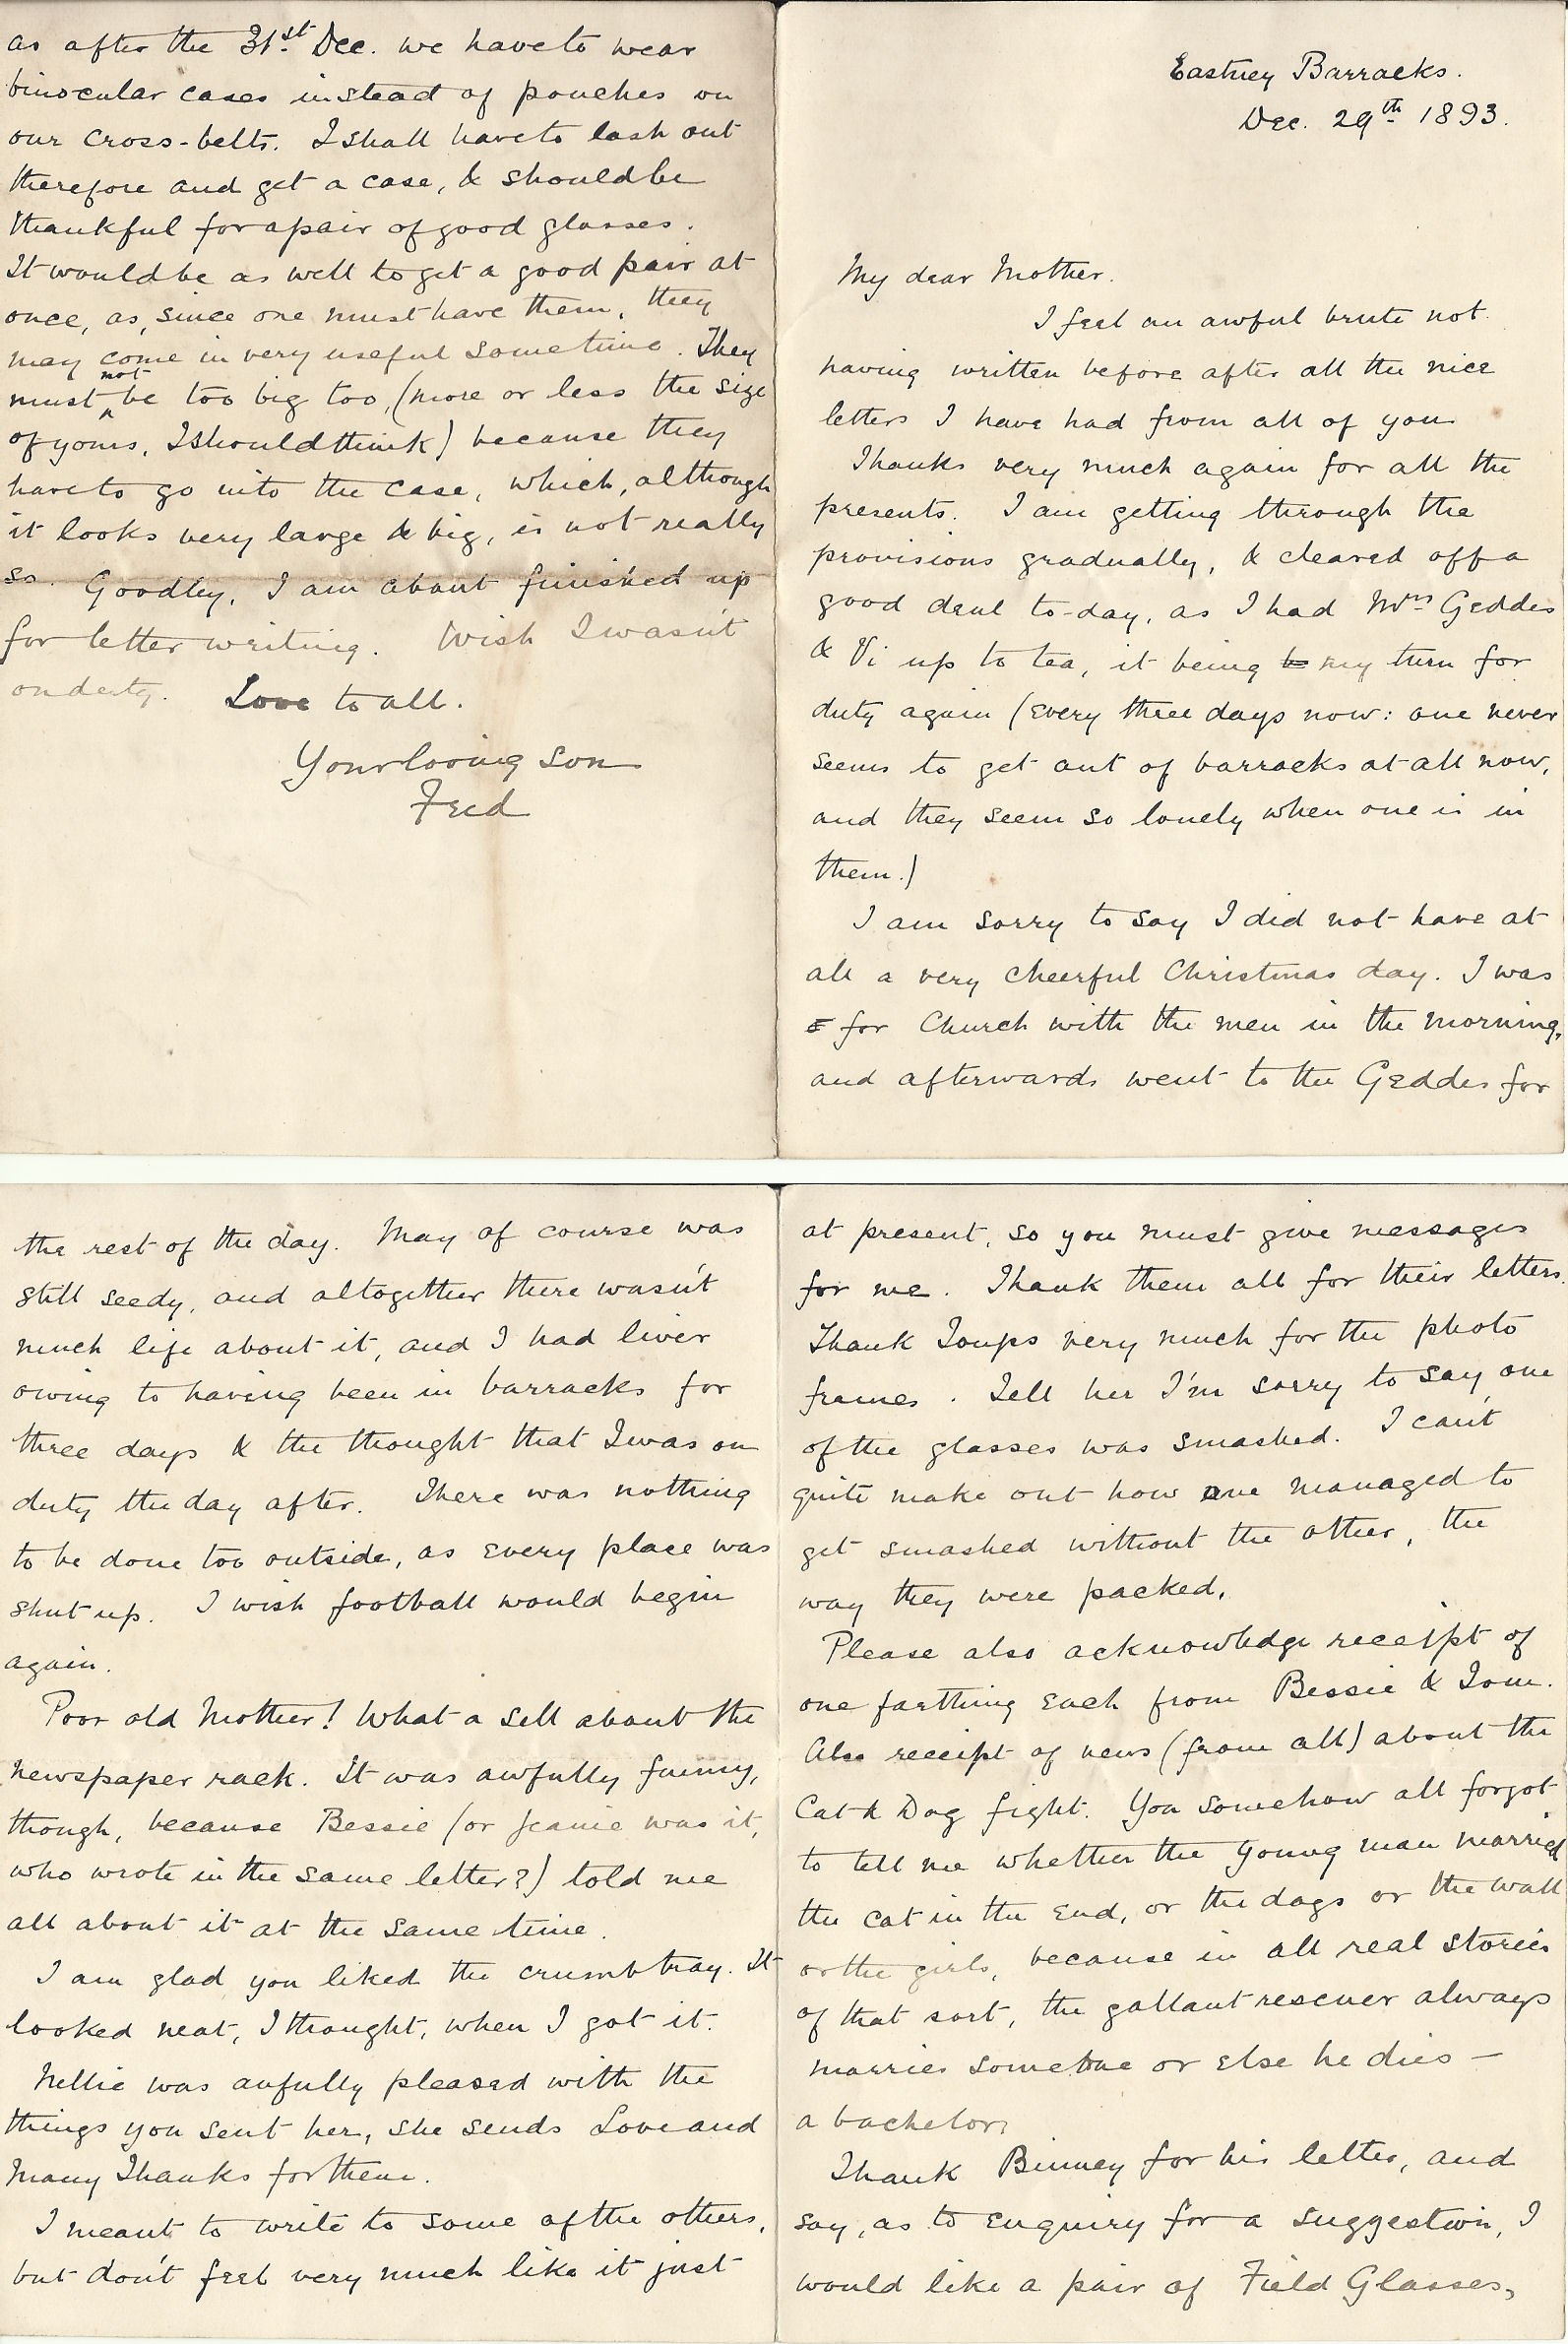 Eastney Barracks.
Dec. 29th 1893.
My dear Mother.
I feel an awful brute not
having written before after all the nice
letters I have had from all of you
Thanks very much again for all the
presents. I am getting through the
provisions gradually, & cleared off a
good deal to-day, as I had Mrs Geddes
& Vi up to tea, it being my turn for
duty again (Every three days now: one never
seems to get out of barracks at all now,
and they seem so lonely when one is in
them.)
I am sorry to say I did not have at
all a very cheerful Christmas day. I was
for Church with the men in the morning,
and afterwards went to the Geddes for
the rest of the day. May of course was
still seedy, and altogether there wasn't
much life about it, and I had liver
owing to having been in barracks for
three days & the thought that I was on
duty the day after. There was nothing
to be done too outside, as every place was
shut up. I wish football would begin
again.
Poor old Mother! What a sell about the
newspaper rack. It was awfully funny,
though, because Bessie (or Jeanie was it,
who wrote in the same letter?) told me
all about it at the same time.
I am glad you liked the crumb tray. It
looked neat, I thought, when I got it.
Nellie was awfully pleased with the
things you sent her, she sends Love and
Many Thanks for them.
I meant to write to some of the others,
but don't feel very much like it just
at present, so you must give messages
for me. Thank them all for their letters.
Thank Toups very much for the photo
frames. Tell her I'm sorry to say one
of the glasses was smashed. I can't
quite make out how one managed to
get smashed without the other, the
way they were packed.
Please also acknowledge receipt of
one farthing each from Bessie & Tom.
Also receipt of news (from all) about the
Cat & Dog fight. You somehow all forgot
to tell me whether the young man married
the cat in the end, or the dogs or the wall
or the girls, because in all real stories
of that sort, the gallant rescuer always
marries someone or else he dies —
a bachelor.
Thank Binney for his letter, and
say, as to enquiry for a suggestion, I
would like a pair of Field Glasses,
as after the 31st Dec. we have to wear
binocular cases instead of pouches on
our cross-belts. I shall have to lash out
therefore and get a case, & should be
thankful for a pair of good glasses.
It would be as well to get a good pair at
once, as, since one must have them, they
may come in very useful sometime. They
must not be too big too, (more or less the size
of yours, I should think) because they
have to go into the case, which, although
it looks very large & big, is not really
so. Goodbye, I am about finished up
for letter writing. Wish I wasn't
on duty. Love to all.
Your loving son
Fred